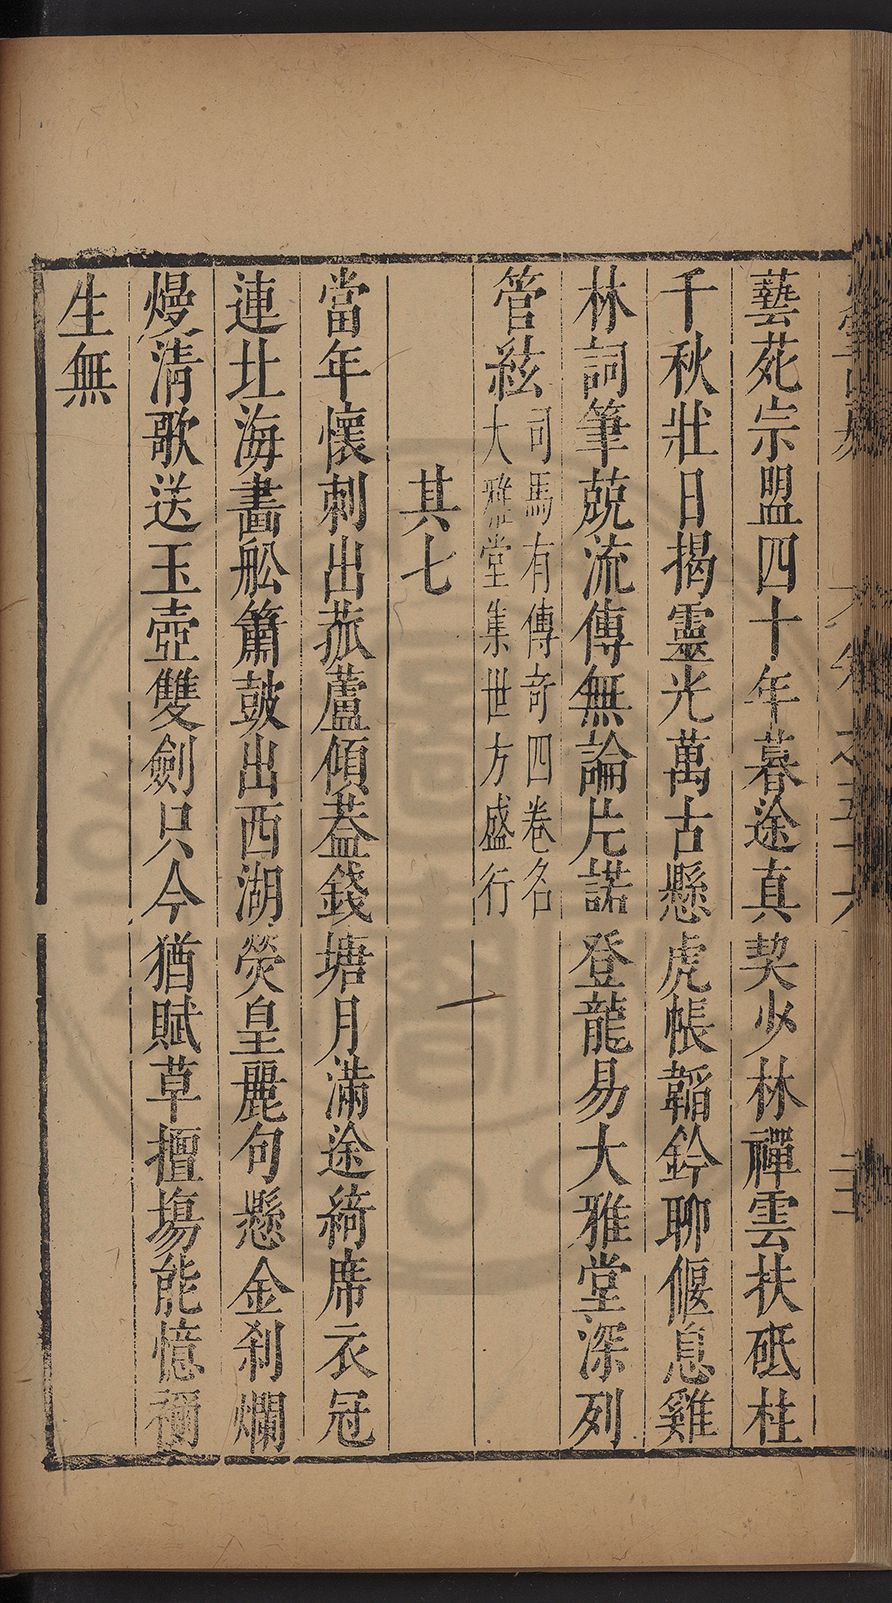 藝苑宗盟四十年暮途真契少林禪雲扶砥柱
千秋壯日揭靈光萬古懸虎帳韜鈐聊偃息雞
林詞筆兢流傳無論片諾登龍易大雅堂深列
管絃司馬有傳奇四卷名
大雅堂集世方盛行
其七
當年懷刺出菰蘆傾葢錢塘月滿途綺席衣冠
連北海畵舩簫鼓出西湖熒皇麗句懸金刹爛
熳清歌送玉壺雙劍只今猶賦草擅塲能憶禰
生無